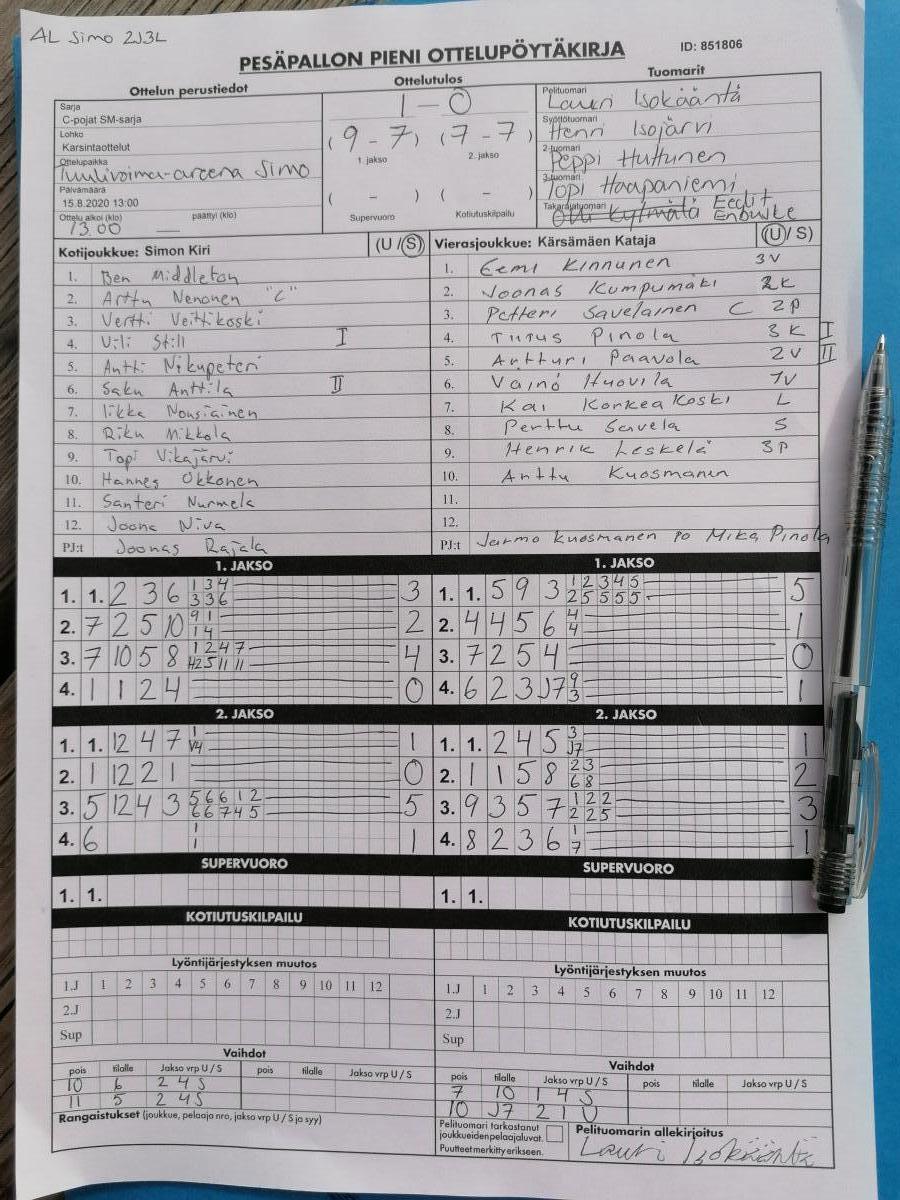 AL Simo 2J3L
PESÄPALLON PIENI OTTELUPÖYTÄKIRJA
ID: 851806
Ottelun perustiedot
Ottelutulos
Tuomarit
Sarja
C-pojat SM-sarja
Lohko
Karsintaottelut
Ottelupaikka
Tuulivoima-areena Simo
Päivämäärä
15.8.2020 13:00
Ottelu alkoi (klo) päättyi (klo)
13.00 —
1 - 0
(9 - 7) (7 - 7)
1. jakso 2. jakso
( - ) ( - )
Supervuoro Kotiutuskilpailu
Pelituomari
Lauri Isokääntä
Syöttötuomari
Henri Isojärvi
2-tuomari
Peppi Huttunen
3-tuomari
Topi Haapaniemi
Takarajatuomari
Eedit
Enbuske
Kotijoukkue: Simon Kiri (U / S)
1. Ben Middleton
2. Arttu Nenonen "C"
3. Vertti Veittikoski
4. Vili Still I
5. Antti Nikupeteri
6. Saku Anttila II
7. Iikka Nousiainen
8. Riku Mikkola
9. Topi Vikajärvi
10. Hannes Okkonen
11. Santeri Nurmela
12. Joona Niva
PJ:t Joonas Rajala
Vierasjoukkue: Kärsämäen Kataja (U / S)
1. Eemi Kinnunen 3V
2. Joonas Kumpumäki 2K
3. Petteri Savelainen C 2P
4. Tutus Pinola 3K I
5. Artturi Paavola 2V II
6. Väinö Huovila 1V
7. Kai Korkeakoski L
8. Perttu Savela S
9. Henrik Leskelä 3P
10. Arttu Kuosmanen
11.
12.
PJ:t Jarmo Kuosmanen PO Mika Pinola
1. JAKSO
1. 1. 2 3 6 1 3 4 3
3 3 6
2. 7 2 5 10 9 1 2
1 4
3. 7 10 5 8 1 2 4 7 4
12 5 11 11
4. 1 1 2 4 0
1. JAKSO
1. 1. 5 9 3 1 2 3 4 5 5
2 5 5 5 5
2. 4 4 5 6 4 1
4
3. 7 2 5 4 0
4. 6 2 3 J7 9 1
3
2. JAKSO
1. 1. 12 4 7 1 1
V4
2. 1 12 2 1 0
3. 5 12 4 3 5 6 6 1 2 5
6 6 7 4 5
4. 6 1 1
1
2. JAKSO
1. 1. 2 4 5 3 1
J7
2. 1 1 5 8 2 3 2
6 8
3. 9 3 5 7 1 2 2 3
2 2 5
4. 8 2 3 6 1 1
7
SUPERVUORO
1. 1.
SUPERVUORO
1. 1.
KOTIUTUSKILPAILU
KOTIUTUSKILPAILU
Lyöntijärjestyksen muutos
1.J 1 2 3 4 5 6 7 8 9 10 11 12
2.J
Sup
Lyöntijärjestyksen muutos
1.J 1 2 3 4 5 6 7 8 9 10 11 12
2.J
Sup
Vaihdot
pois tilalle Jakso vrp U / S pois tilalle Jakso vrp U / S
10 6 2 4 S
11 5 2 4 S
Rangaistukset (joukkue, pelaaja nro, jakso vrp U / S ja syy)
Vaihdot
pois tilalle Jakso vrp U / S pois tilalle Jakso vrp U / S
7 10 1 4 S
10 J7 2 1 U
Pelituomari tarkastanut
joukkueiden pelaajaluvat.
Puutteet merkitty erikseen.
Pelituomarin allekirjoitus
Lauri Isokääntä